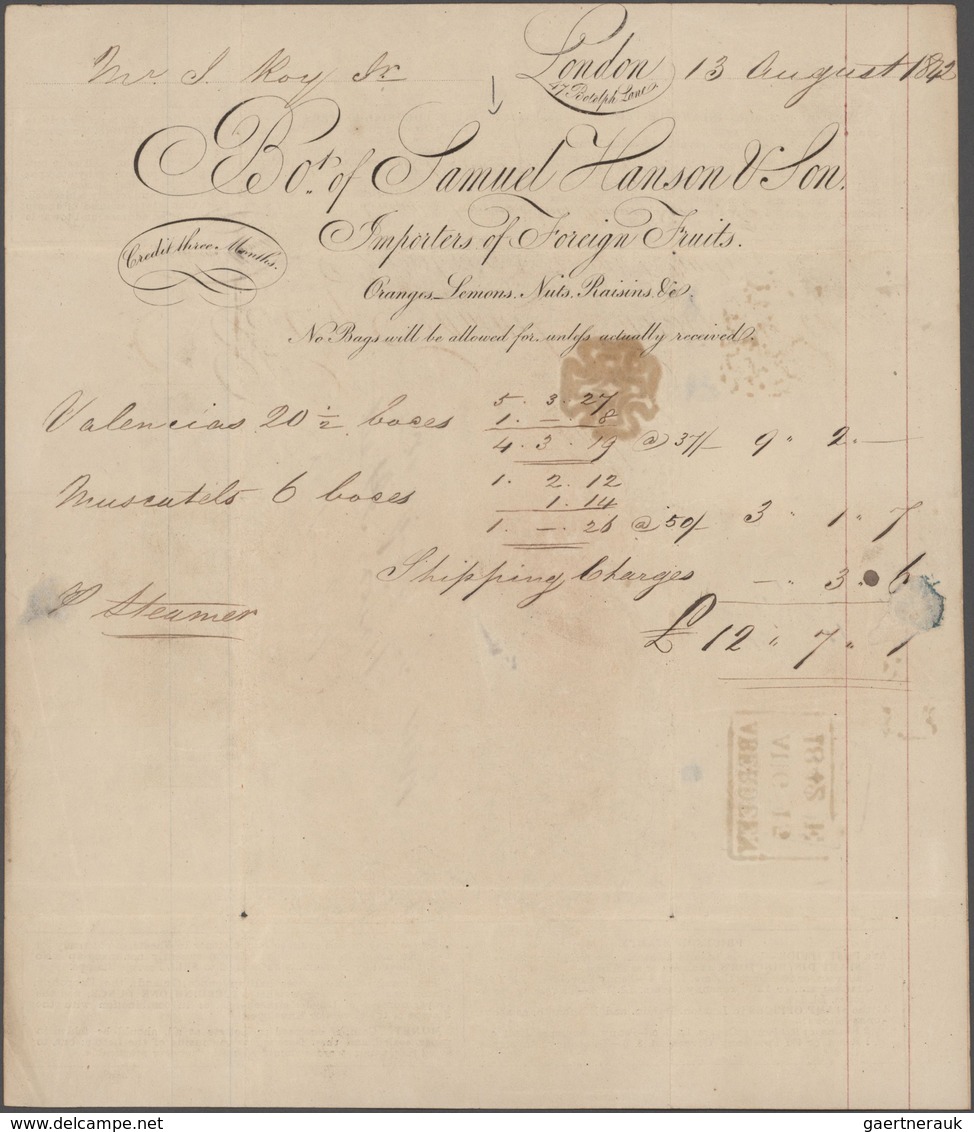 Mr. J. Roy Jr
London 13 August 1842
47 Botolph Lane
Bot. of Samuel Hanson & Son.
Importers of Foreign Fruits.
Credit three Months.
Oranges, Lemons, Nuts, Raisins &c.
No Bags will be allowed for, unless actually received.
5 . 3 . 27
Valencias 20 ½ boxes 1 . — . 8
4 . 3 . 19 @ 37/- 9 " 2 " —
1 . 2 . 12
Muscatels 6 boxes 1 . 14
1 . — . 26 @ 50/ 3 " 1 " 7
Shipping Charges — " 3 " 6
P Steamer
£ 12 " 7 " 1
ABERDEEN
AUG 15
1842 E
gaertnerauk